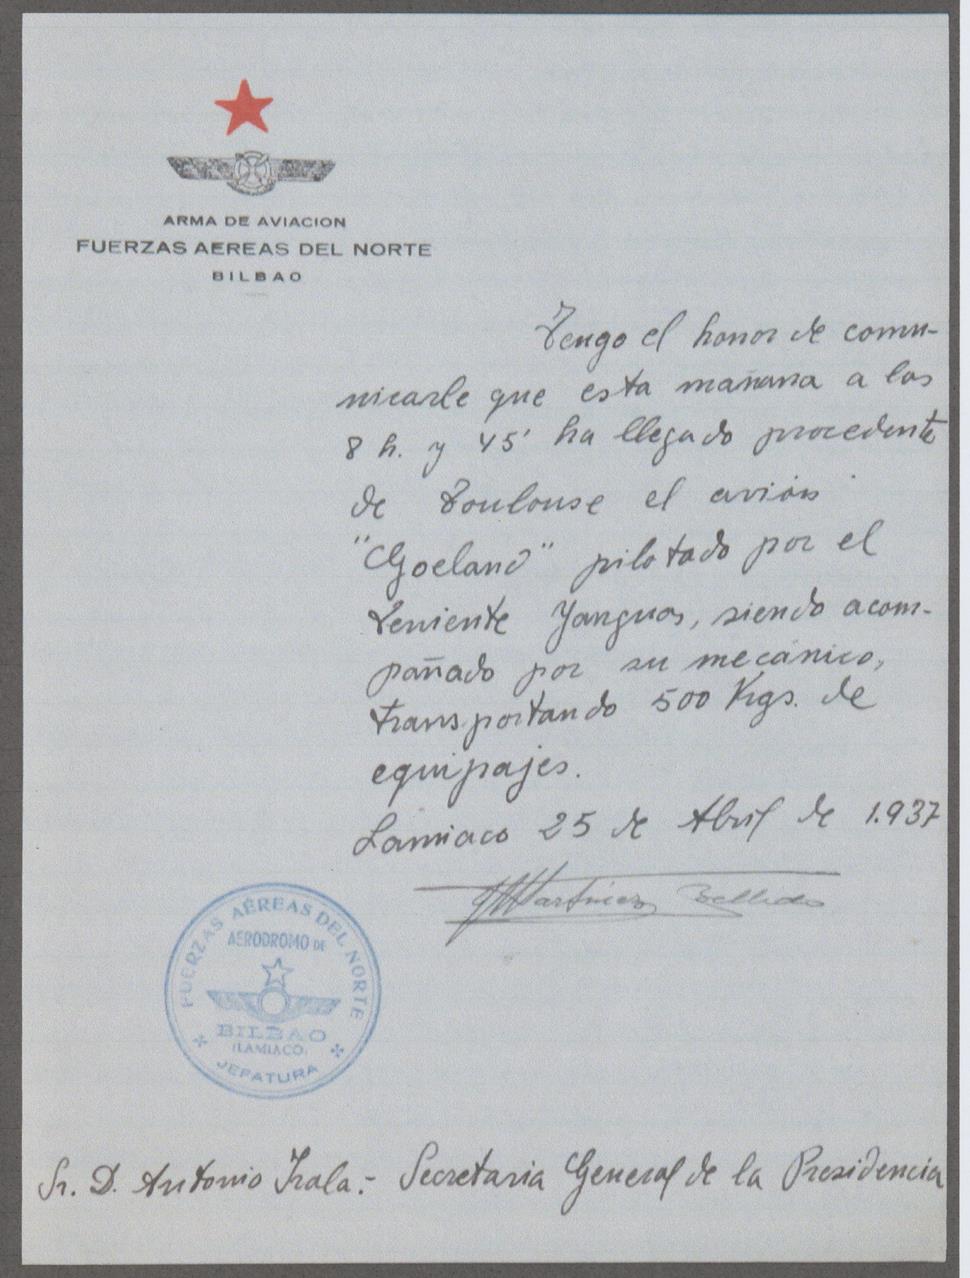 ARMA DE AVIACION
FUERZAS AEREAS DEL NORTE
BILBAO
Tengo el honor de comu-
nicarle que esta mañana a las
8 h. y 45' ha llegado procedente
de Toulouse el avión
"Goeland" pilotado por el
teniente Yanguas, siendo acom-
pañado por su mecánico,
transportando 500 Kgs. de
equipajes.
Lamiaco 25 de Abril de 1.937
Martinez Bellido
FUERZAS AÉREAS DEL NORTE
AERODROMO DE
BILBAO
(LAMIACO)
JEFATURA
Sr. D. Antonio Irala.- Secretaria General de la Presidencia